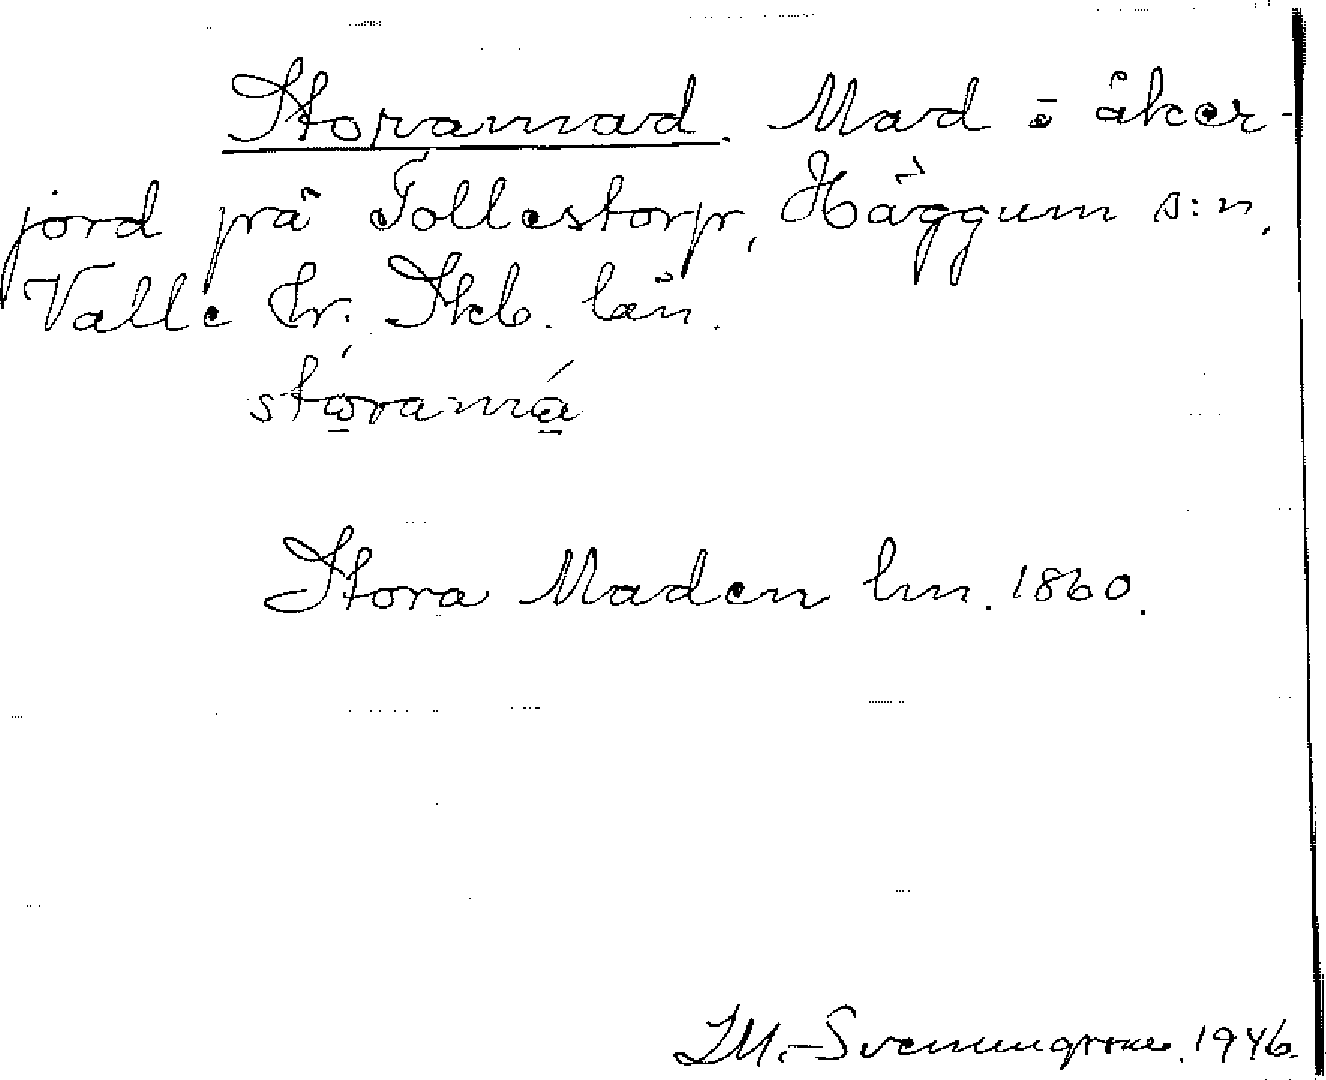 Storamad. Mad i åker-
jord på Tollestorp, Häggum s:n,
Valle hr. Skb. län.
stóramá
Stora Maden hm. 1860.
I.M.-Svenungsson. 1946.